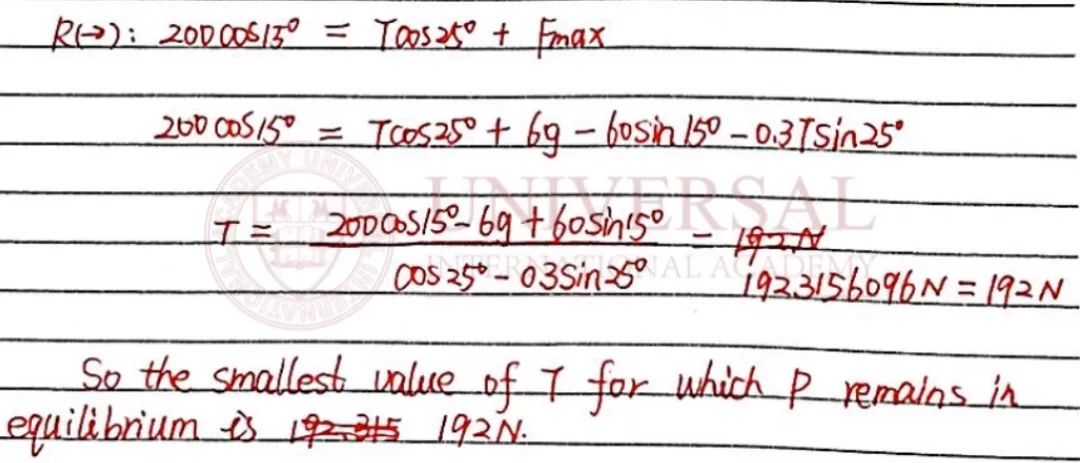 R(→): 200cos15° = Tcos25° + Fmax
200cos15° = Tcos25° + 6g - 60sin15° - 0.3Tsin25°
T = (200cos15° - 6g + 60sin15°) / (cos25° - 03sin25°) = 192N
192.3156096N = 192N
UNIVERSAL
INTERNATIONAL ACADEMY
So the smallest value of T for which P remains in
equilibrium is 192.315 192N.